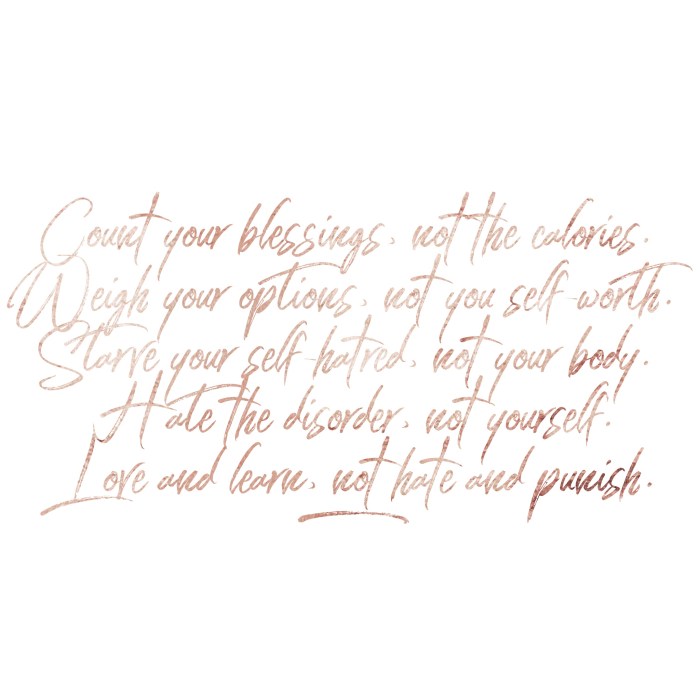 Count your blessings, not the calories.
Weigh your options, not you self-worth.
Starve your self-hatred, not your body.
Hate the disorder, not yourself.
Love and learn, not hate and punish.